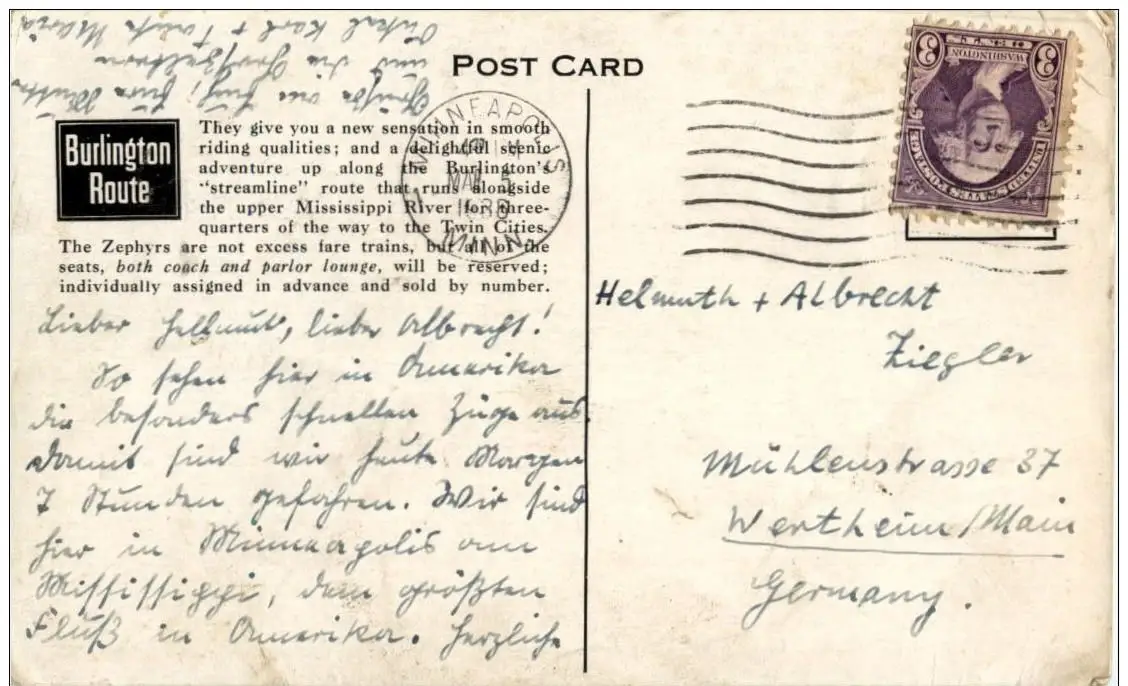 POST CARD
Burlington
Route
They give you a new sensation in smooth
riding qualities; and a delightful scenic
adventure up along the Burlington's
"streamline" route that runs alongside
the upper Mississippi River for three-
quarters of the way to the Twin Cities.
The Zephyrs are not excess fare trains, but all of the
seats, both coach and parlor lounge, will be reserved;
individually assigned in advance and sold by number.
MINNEAPOLIS
MINN.
3 CENTS 3
WASHINGTON
UNITED STATES POSTAGE
Lieber Hellmut, lieber Albrecht!
So sehen hier in Amerika
die besonders schnellen Züge aus.
Damit sind wir heute Morgen
7 Stunden gefahren. Wir sind
hier in Minneapolis am
Mississippi, dem größten
Fluß in Amerika. Herzliche
Grüße an Euch, Eure Mutter
und die Großeltern
Onkel Karl + Tante Maria
Helmuth + Albrecht
Ziegler
Mühlenstrasse 37
Wertheim/Main
Germany.